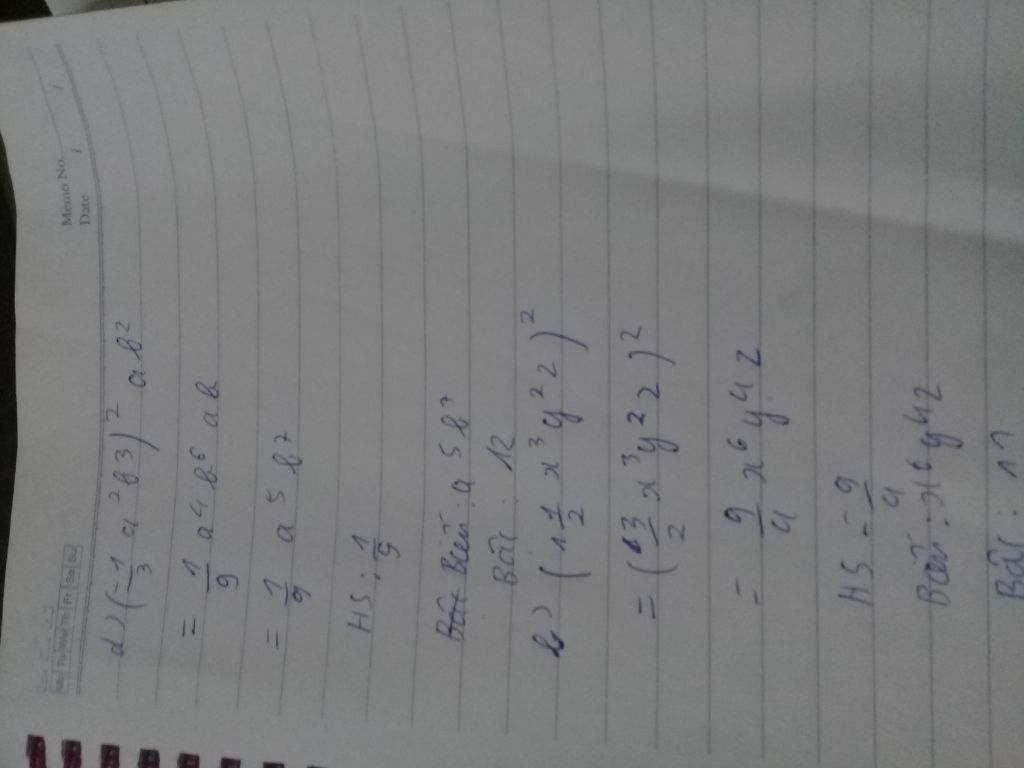 Memo No.
Date
Mo Tu We Th Fr Sa Su
d) (-1/3 a²b3)² ab²
= 1/9 a⁴ b⁶ ab
= 1/9 a⁵ b⁷
HS : 1/9
Biến : a⁵b⁷
Bậc : 12
b) (1 1/2 x³y²z)²
= (3/2 x³y²z)²
= 9/4 x⁶y⁴z
HS = 9/4
Biến : x⁶y⁴z
Bậc : 11